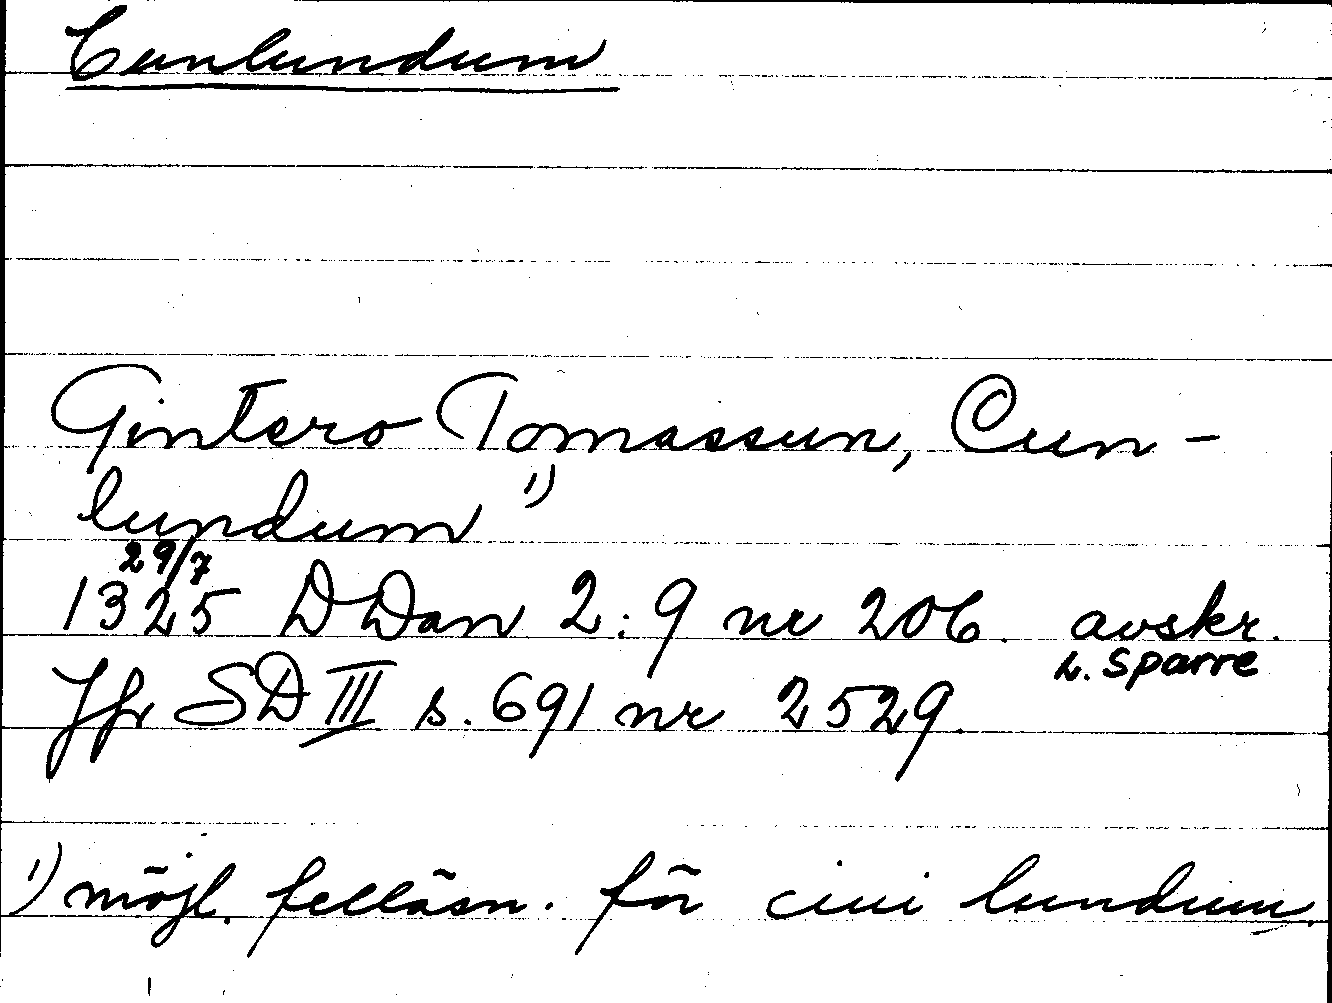 Cunlundum
Gintero Tomassun, Cun-
lundum 1)
29/7
1325 DDan 2:9 nr 206. avskr.
L. Sparre
Jfr SD III s. 691 nr 2529.
1) möjl. felläsn. för ciui lundum.